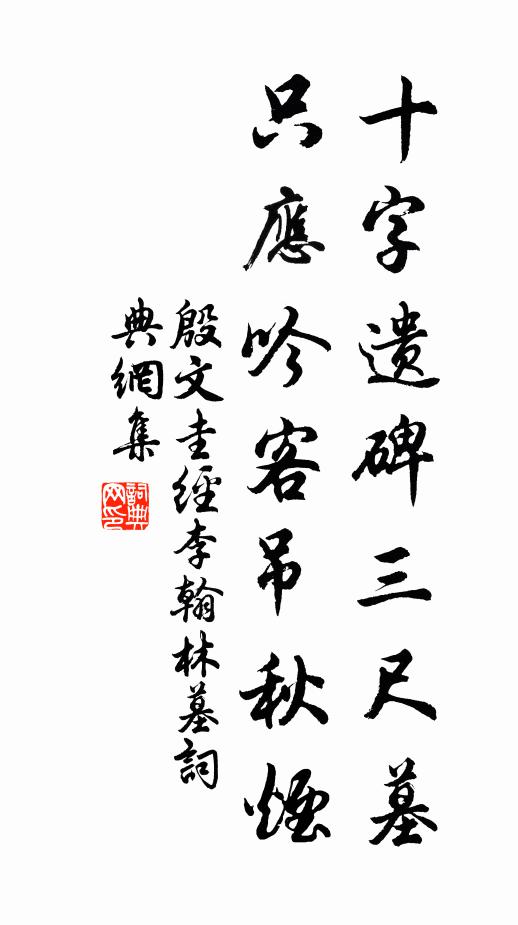 十字遺碑三尺墓
只應吟客吊秋煙
殷文圭經李翰林墓詞
典網集
詞典網印